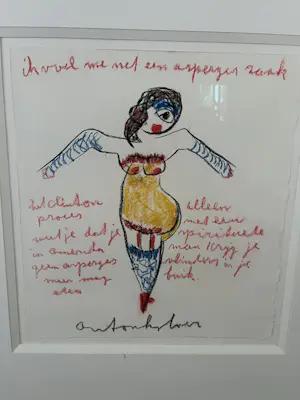 ik voel me net een asperger zaak
het clinton
proces
weet je dat je
in amerika
geen asperges
meer mag
eten
alleen
met een
spirituele
man kryg je
vlinders in je
buik